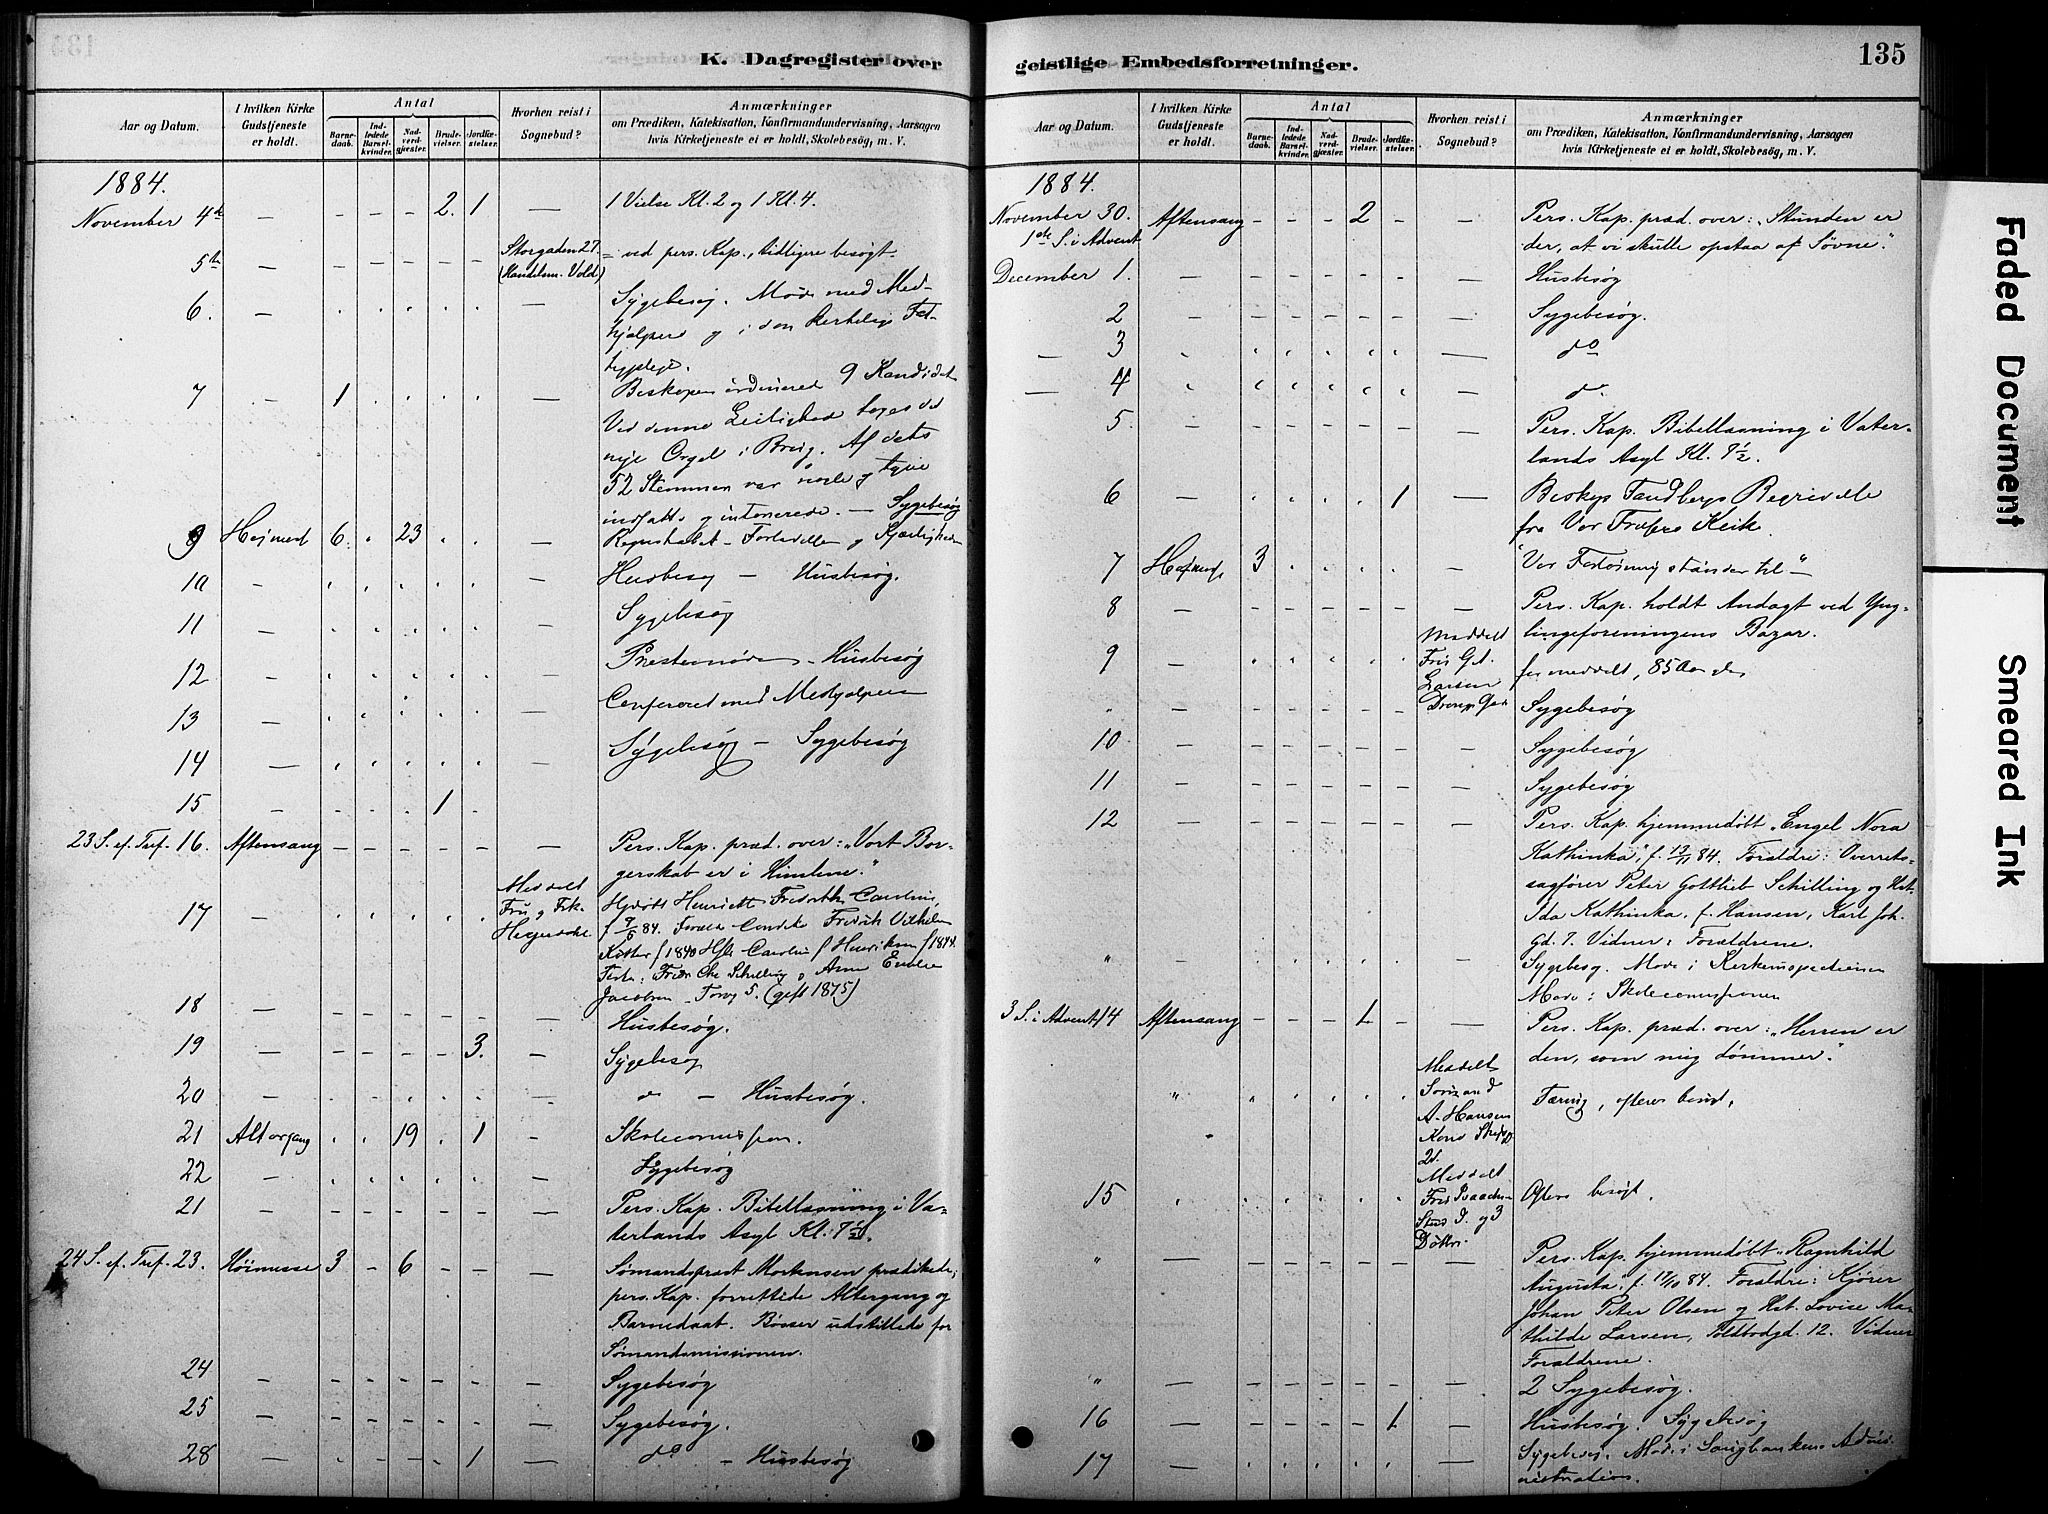 K. Dagregister over
geistlige Embedsforretninger.
135
Aar og Datum.
I hvilken Kirke Gudstjeneste er holdt.
Antal
Barnedaab.
Indledede Barselkvinder.
Nadverdgjæster.
Brudevielser.
Jordfæstelser.
Hvorhen reist i Sognebud?
Anmærkninger
om Prædiken, Katekisation, Konfirmandundervisning, Aarsagen
hvis Kirketjeneste ei er holdt, Skolebesøg, m. V.
1884.
November 4de — — — — 2. 1 — 1 Vielse Kl. 2 og 1 Kl. 4.
5te — Storgaden 27. (Handelsm. Vold) = ved pers. Kap., tidligere besøgt
6. — Sygebesøg. Møde med Med-
hjælpere og i den
7 — 1 — Biskopen ordinered 9 Kandidat
Ved denne Leilighed toges det
nye Orgel i Brug. Af dets
52 Stemmer var nogle og tyve
indsatte og intonerede. — Sygebesøg
9 Højmes 6. 23 —
10 — Husbesøg — Husbesøg.
11 — Sygebesøg
12 — Prestemøde — Husbesøg
13 — Confereret med Medhjælpere
14 — Sygebesøg — Sygebesøg
15 — 1
23 S. ef. Tref. 16. Aftensang — Pers. Kap. præd. over: „Vort Bor-
gerskab er i Himlene."
17 — Meddelt Fru og Frk.
Hjdøbt Henriette Fredrikke Caroline,
Jacobsen — Torvg 5. (gift 1875)
18 — Husbesøg.
19 — 3. — Sygebesøg
20 — do — Husbesøg.
21 Altergang 19 1 — Skolecommission.
22 — Sygebesøg
21 — Pers. Kap. Bibellæsning i Va-
terlands Asyl Kl. 7½.
24 S. ef. Tref. 23. Høimesse 3 — 6 — Sømandsprest Mortensen prædikede;
pers. Kap. forrettede Altergang og
Barnedaab. Bøsser udstillede for
Sømandsmissionen.
24 — Sygebesøg
25 — Sygebesøg.
28 — 1 do — Husbesøg
Aar og Datum.
I hvilken Kirke Gudstjeneste er holdt.
Antal
Barnedaab.
Indledede Barselkvinder.
Nadverdgjæster.
Brudevielser.
Jordfæstelser.
Hvorhen reist i Sognebud?
Anmærkninger
om Prædiken, Katekisation, Konfirmandundervisning, Aarsagen
hvis Kirketjeneste ei er holdt, Skolebesøg, m. V.
1884.
November 30. Aftensang — — — 2 — — Pers. Kap. præd. over: „Stunden er
1ste S. i Advent der, at vi skulle opstaa af Søvne."
December 1. — Husbesøg
2 — Sygebesøg.
3 — do
4 — do
5. — Pers. Kap. Bibellæsning i Vater-
lands Asyl Kl. 7½.
6 — 1 — Biskop Tandbergs Begravelse
fra Vor Frelsers Kirke.
7 Højmes 3 — "Vor Forløsning stunder til"
8 — Pers. Kap. holdt Andagt ved Yng-
lingeforeningens Bazar.
9 — Meddelt Larsen
" — Sygebesøg
10 — Sygebesøg
11 — Sygebesøg
12 — Pers. Kap. hjemmedøbt „Engel Nora
Kathinka", f. 13/11 84. Forældre: Overrets-
sagfører Peter Gottlieb Schilling og Hst.
Ida Kathinka, f. Hansen, Karl Joh.
Gd. 7. Vidner: Forældrene.
" — Sygebesøg. Møde i Kirkeinspectionen
Møde i Skolecommissionen
3 S. i Advent 14 Aftensang — — — 1 — — Pers. Kap. præd. over: „Herren er
den, som mig dømmer."
" — Meddelt A. Hansen Tæring, oftere besøgt,
15 Meddelt og 3 Døttre. Oftere besøgt.
" — Pers. Kap. hjemmedøbt „Ragnhild
Augusta", f. 17/10 84. Forældre: Kjører
Johan Peter Olsen og Hst. Lovise Ma-
thilde Larsen, Toldbodgd. 12. Vidner
Forældrene.
" — 2 Sygebesøg.
16 — 1 — Husbesøg. Sygebesøg
17 — Sygebesøg. Møde i Admi-
nistration.
Faded Document
Smeared Ink